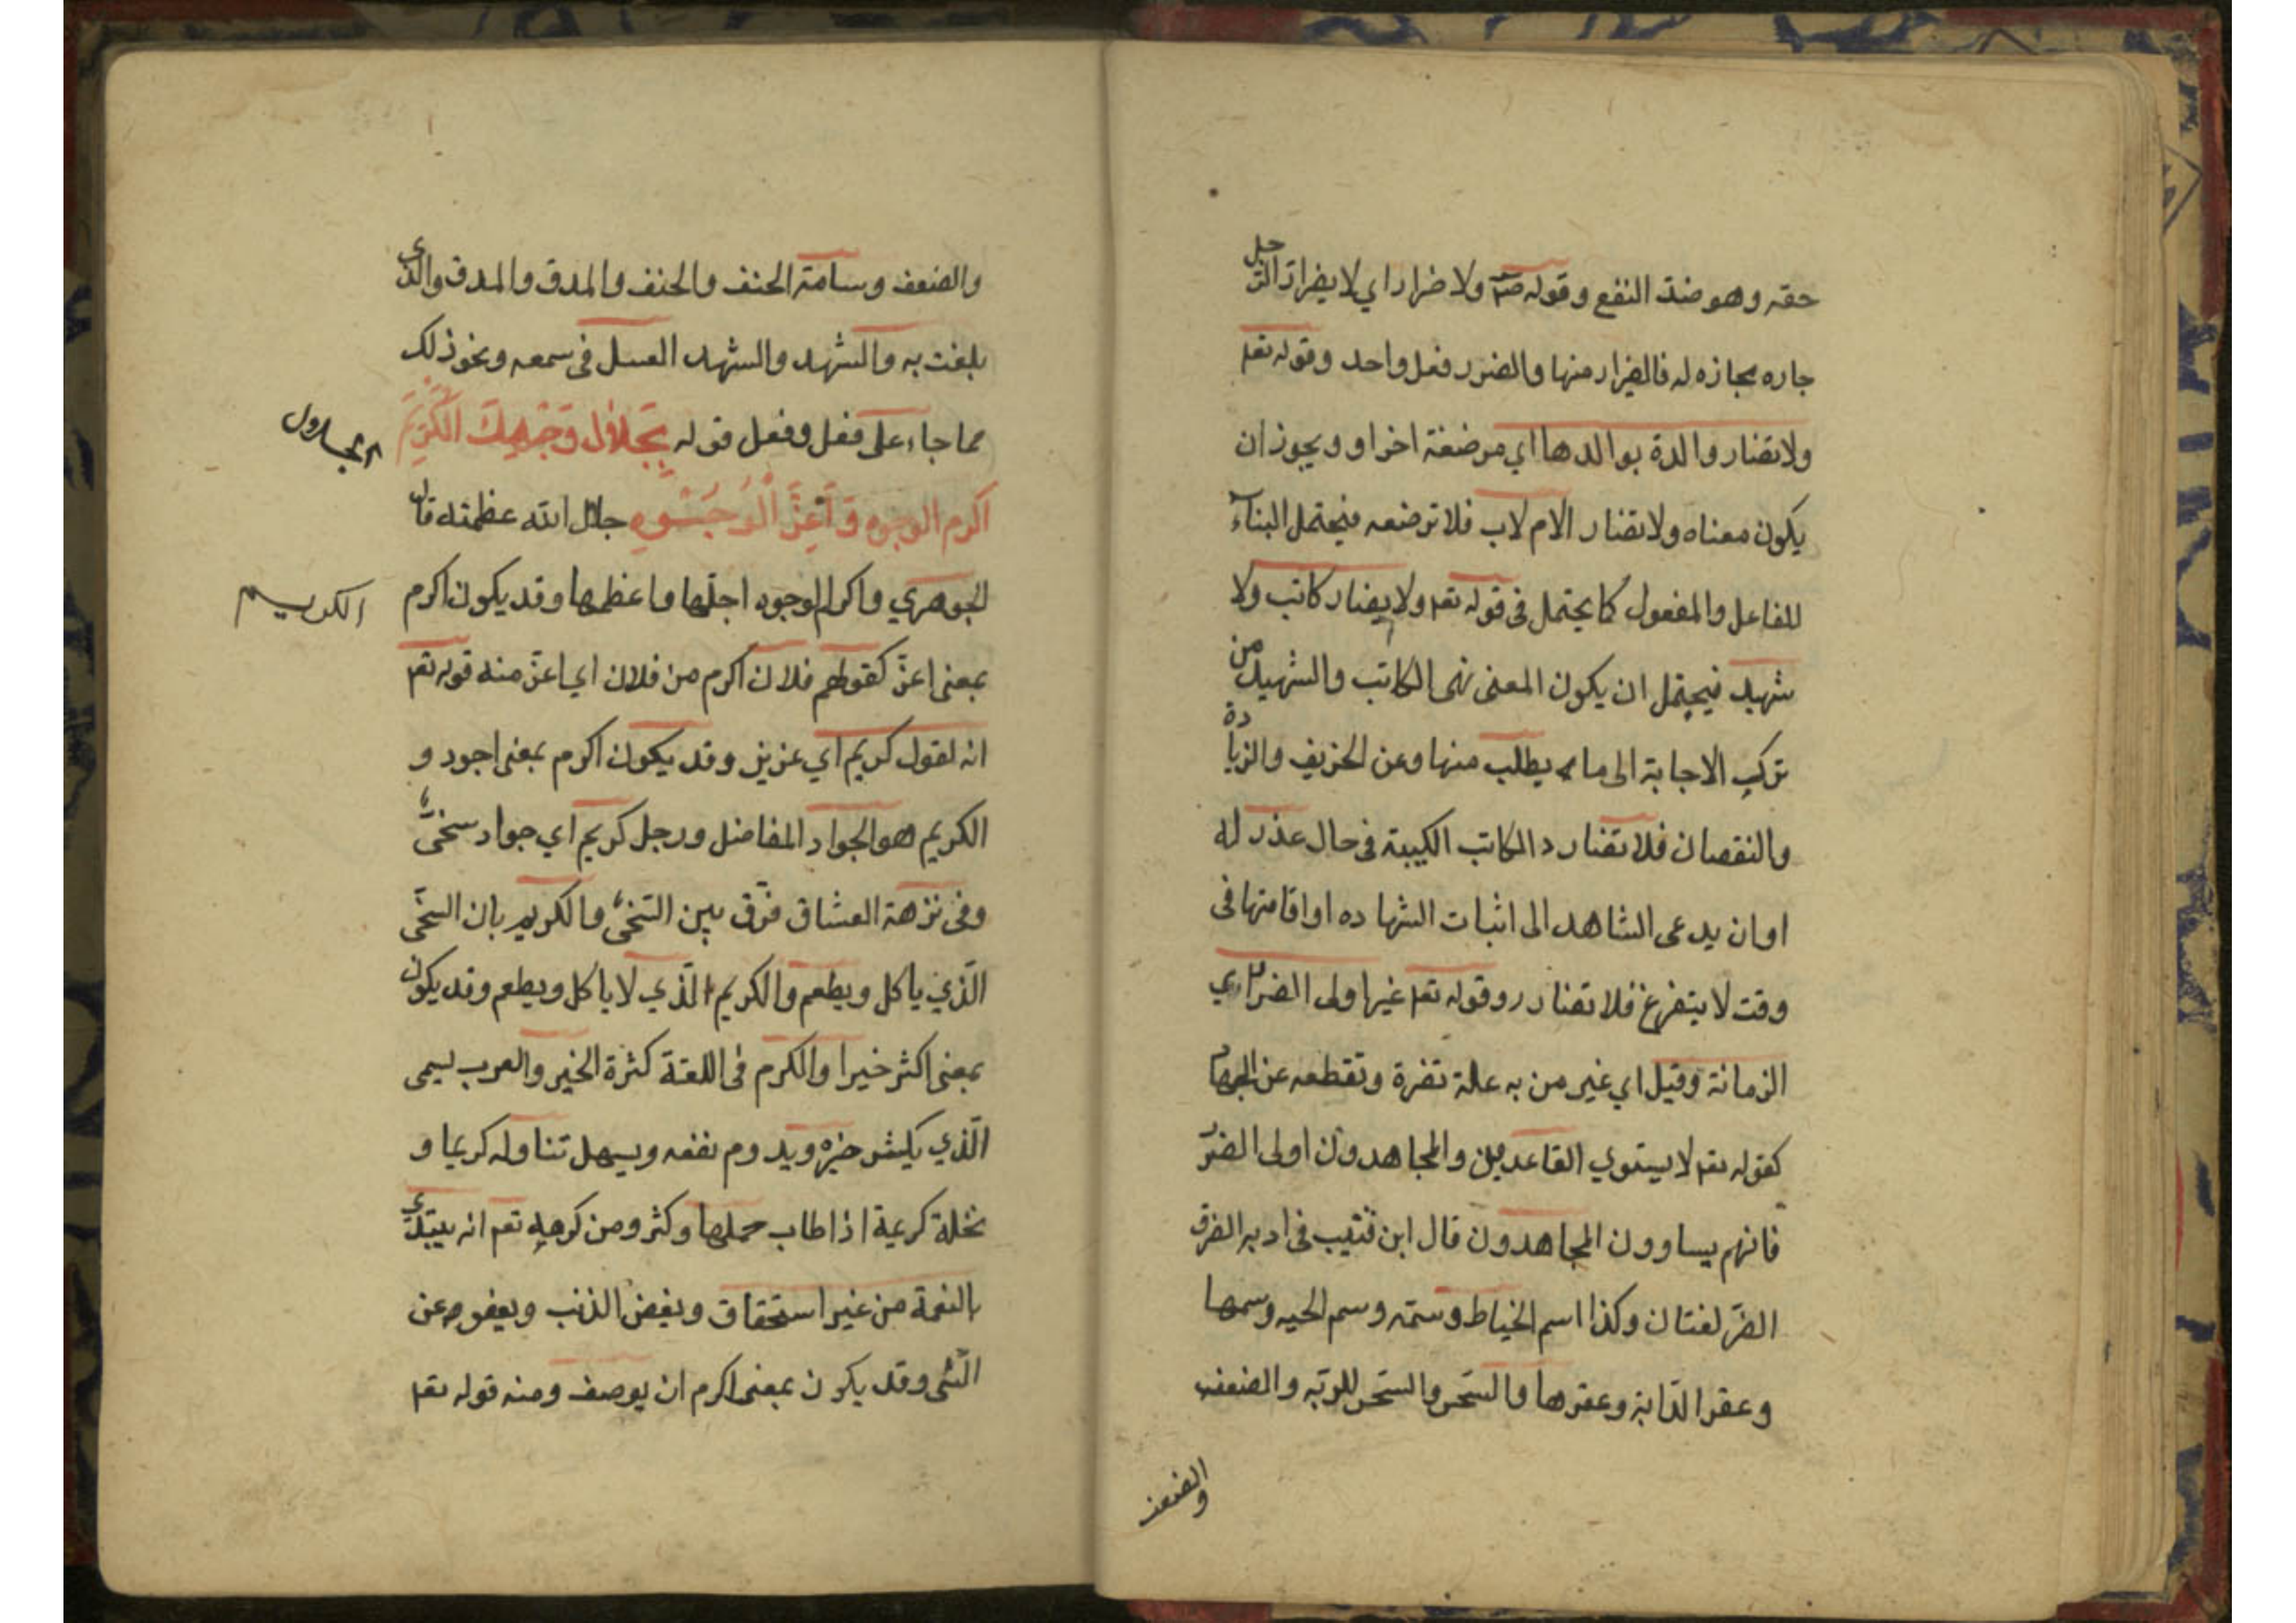 حقه وهو ضد النفع وقوله صم ولا ضرار اي لا يضرار الرجل
جاره بجازه له فالضرار منها والضرر فعل واحد وقوله تعم
ولا تضار والدة بوالدها اي مرضعة اخر او ويجوز ان
يكون معناه ولا تضار الام لاب فلا ترضعه فيحتمل البناء
للفاعل والمفعول كما يحتمل في قوله تعم ولا يضار كاتب ولا
شهيد فيحتمل ان يكون المعنى نهى الكاتب والشهيد من
ترك الاجابة الى ما يطلب منها وعن الحريف والزيادة
والنقصان فلا تضار د الكاتب الكيبة في حال عذر له
او ان يدعى الشاهد الى اثبات الشهاده او اقامتها في
وقت لا يتفرغ فلا تضار ر وقوله تعم غير اولى الضرر اي
الزمانة وقيل اي غير من به علة تضرة وتقطعه عن الجهاد
كقوله تعم لا يستوي القاعدين والمجاهدون اولى الضرر
فانهم يساوون المجاهدون قال ابن قتيب في ادبه الضر و
الضر لغتان وكذا اسم الخياط وسمه وسم الحيه وسمها
وعقر الدابة وعقرها والسحر والسحر للوية والضعف
والضعف
والضعف وسامة الحنف والحنف والمدق والمدق والذي
بلغت به والشهد والشهد العسل في سمعه ونحو ذلك
مما جاء على فعل وفعل قوله بجلال وجهك الكريم
الجلال
اكرم الوجوه واعز الوجوه جلال الله عظمته قال
الجوهري واكرم الوجوه اجلها واعظمها وقد يكون اكرم
الكريم
بمعنى اعز كقولهم فلان اكرم من فلان اي اعز منه قوله تعم
انه لقول كريم اي عزيز وقد يكون اكرم بمعنى اجود و
الكريم هو الجواد المفاضل ورجل كريم اي جواد سخى
وفى نزهة العشاق فرق بين السخى والكريم بان السخى
الذي ياكل ويطعم والكريم الذي لا ياكل ويطعم وقد يكون
بمعنى اكثر خيرا والكرم في اللغة كثرة الخير والعرب يسمى
الذي يكثر خيره ويدوم نفعه ويسهل تناوله كريما و
نخلة كريمة اذا طاب حملها وكثر ومن كرمه تعم انه يبتدي
بالنعمة من غير استحقاق ويغفر الذنب ويعفو عن
الشى وقد يكون بمعنى اكرم ان يوصف ومنه قوله تعم